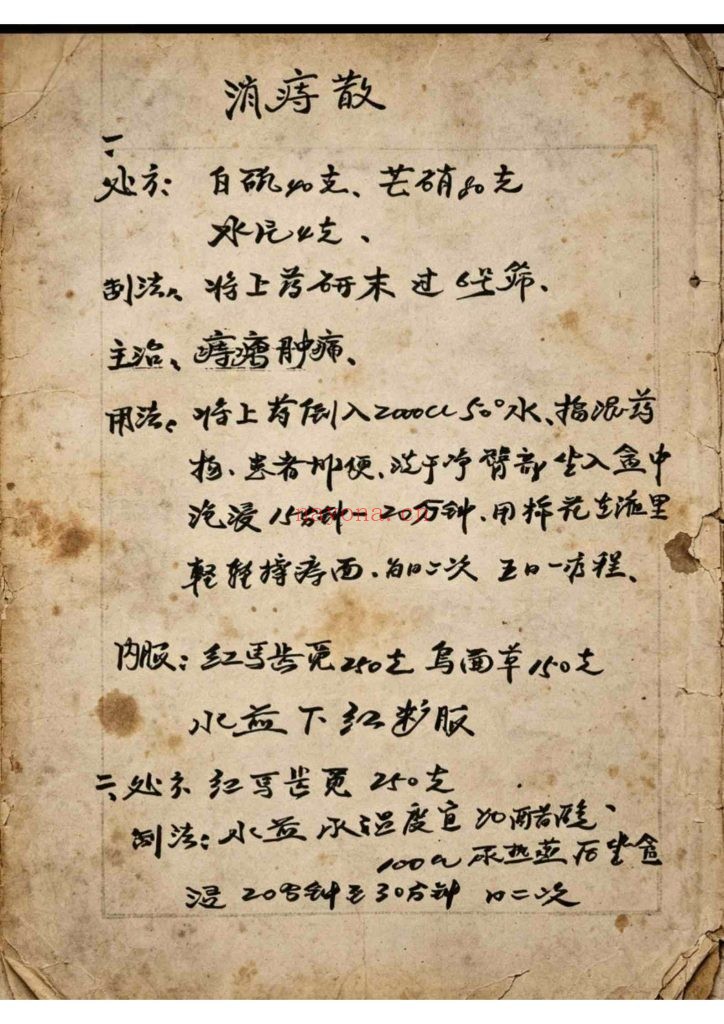 消痔散
一、
处方: 白矾40克、芒硝80克
冰片4克、
制法: 将上药研末 过 6号筛、
主治、痔瘡肿痛、
用法: 将上药倒入2000cc 50°水、搅混药
物、患者排便、洗干净臀部坐入盆中
泡浸15分钟 20分钟、用棉花在池里
轻轻擦痔面、每日二次 五日一疗程、
内服: 红马齿苋250克 草150克
水 下红 服
二、处方 红马齿苋 250克
制法: 水 水温度宜 加醋
100cc 水热蒸后坐盆
浸 20分钟至30分钟 日二次